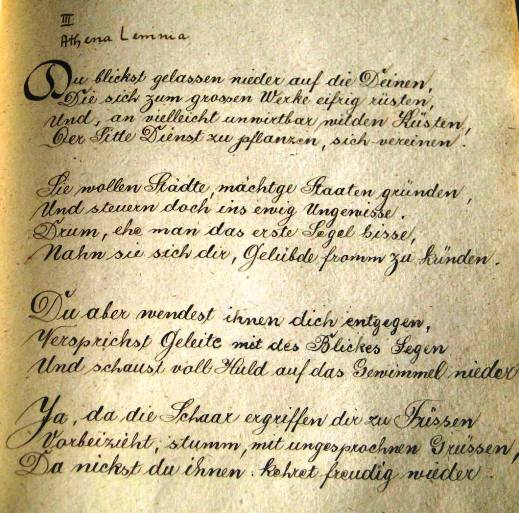 III
Athena Lemnia
Du blickst gelassen nieder auf die Deinen,
Die sich zum grossen Werke eifrig rüsten,
Und, an vielleicht unwirtbar wilden Küsten,
Der Sitte Dienst zu pflanzen, sich vereinen.
Sie wollen Städte, mächtge Staaten gründen,
Und steuern doch ins ewig Ungewisse.
Drum, ehe man das erste Segel hisse,
Nahn sie sich dir, Gelübde fromm zu künden.
Du aber wendest ihnen dich entgegen,
Versprichst Geleite mit des Blickes Segen
Und schaust voll Huld auf das Gewimmel nieder
Ja, da die Schaar ergriffen dir zu Füssen
Vorbeizieht, stumm, mit ungesprochnen Grüssen,
Da nickst du ihnen: kehret freudig wieder.